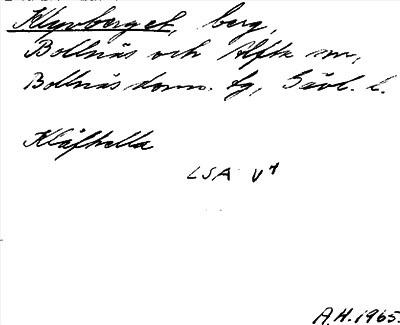 Klyvberget, berg,
Bollnäs och Alfta snr,
Bollnäs doms. tg, Gävl. l.
Klåfhella
LSA V 4
A.H. 1965.